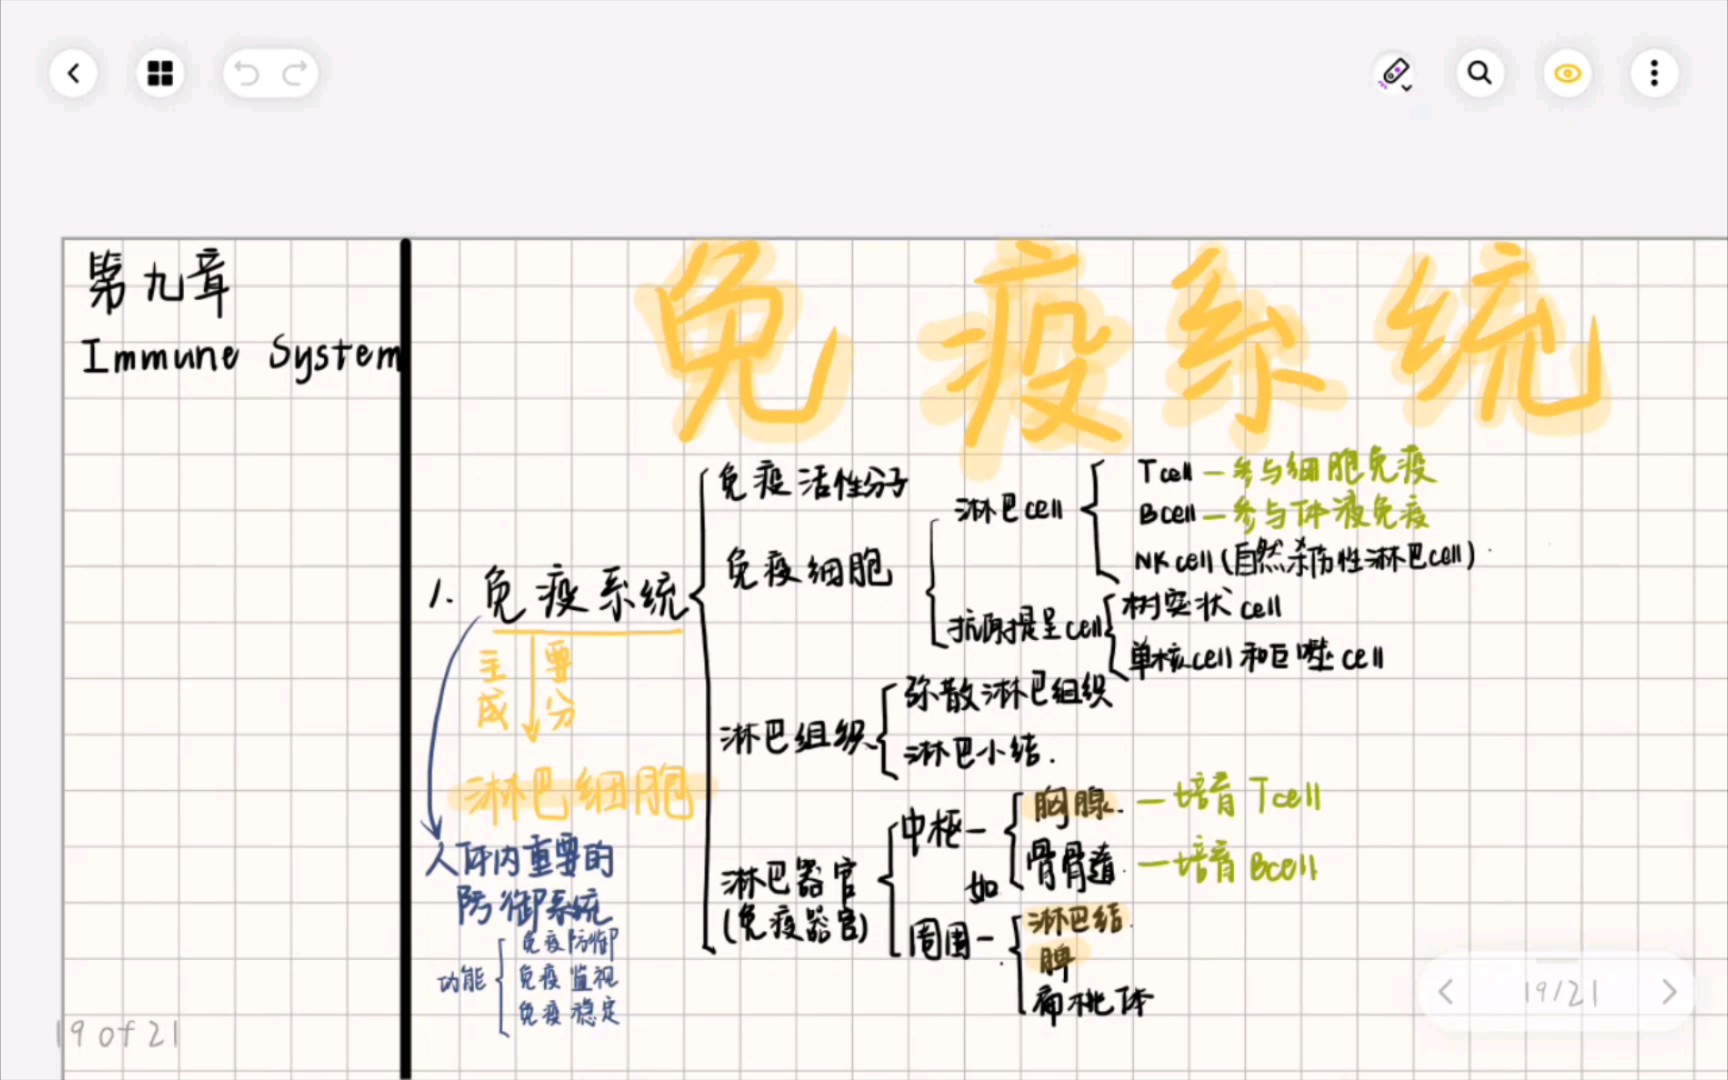 第九章
Immune System
免疫系统
1. 免疫系统
主要
成分
淋巴细胞
人体内重要的
防御系统
功能
免疫防御
免疫监视
免疫稳定
免疫活性分子
免疫细胞
淋巴cell
Tcell — 参与细胞免疫
Bcell — 参与体液免疫
NK cell (自然杀伤性淋巴cell)
抗原提呈cell
树突状cell
单核cell和巨噬cell
淋巴组织
弥散淋巴组织
淋巴小结.
淋巴器官
(免疫器官)
中枢 —
如
胸腺. — 培育 Tcell
骨骨道 — 培育 Bcell
周围 —
淋巴结
脾
扁桃体
19 of 21
19/21